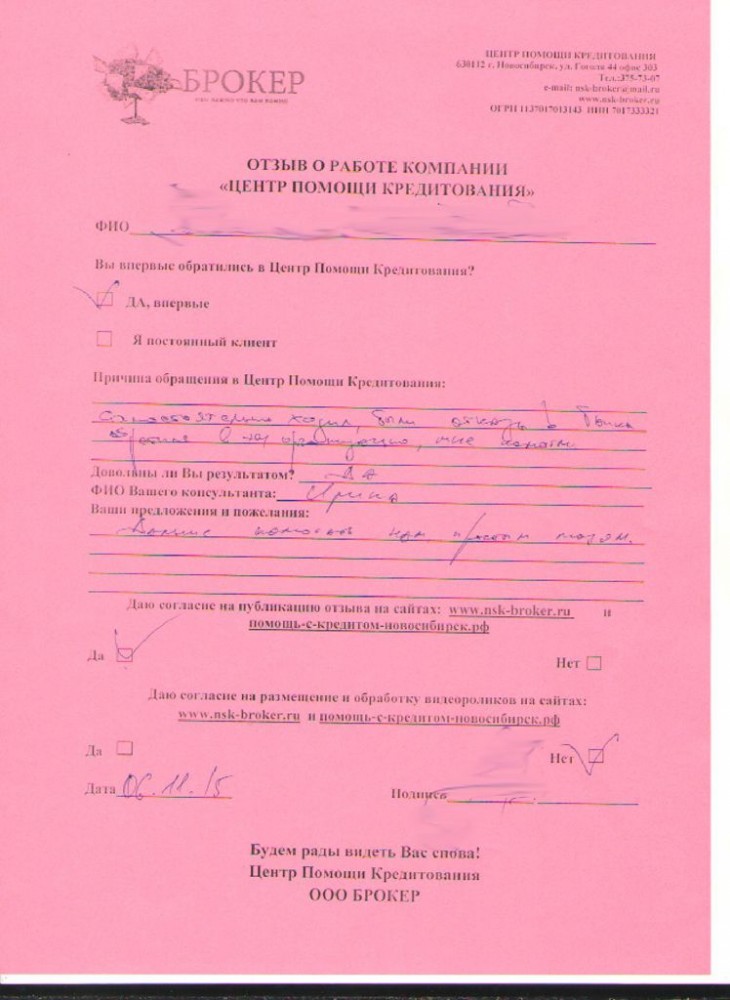 БРОКЕР
ЦЕНТР ПОМОЩИ КРЕДИТОВАНИЯ
630112 г. Новосибирск, ул. Гоголя 44 офис 303
Тел.:375-73-07
e-mail: nsk-broker@mail.ru
www.nsk-broker.ru
ОГРН 1137017013143 ИНН 7017333321
ОТЗЫВ О РАБОТЕ КОМПАНИИ
«ЦЕНТР ПОМОЩИ КРЕДИТОВАНИЯ»
ФИО
Вы впервые обратились в Центр Помощи Кредитования?
ДА, впервые
Я постоянный клиент
Причина обращения в Центр Помощи Кредитования:
Самостоятельно ходил, были отказы в
в организацию, мне помогли
Довольны ли Вы результатом? Да
ФИО Вашего консультанта: Ирина
Ваши предложения и пожелания:
помогать нам простым людям.
Даю согласие на публикацию отзыва на сайтах: www.nsk-broker.ru и
помощь-с-кредитом-новосибирск.рф
Да
Нет
Даю согласие на размещение и обработку видеороликов на сайтах:
www.nsk-broker.ru и помощь-с-кредитом-новосибирск.рф
Да
Нет
Дата 06.11.15
Подпись
Будем рады видеть Вас снова!
Центр Помощи Кредитования
ООО БРОКЕР